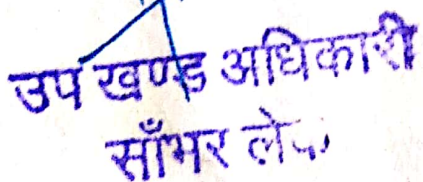 उप खण्ड अधिकारी
साँभर